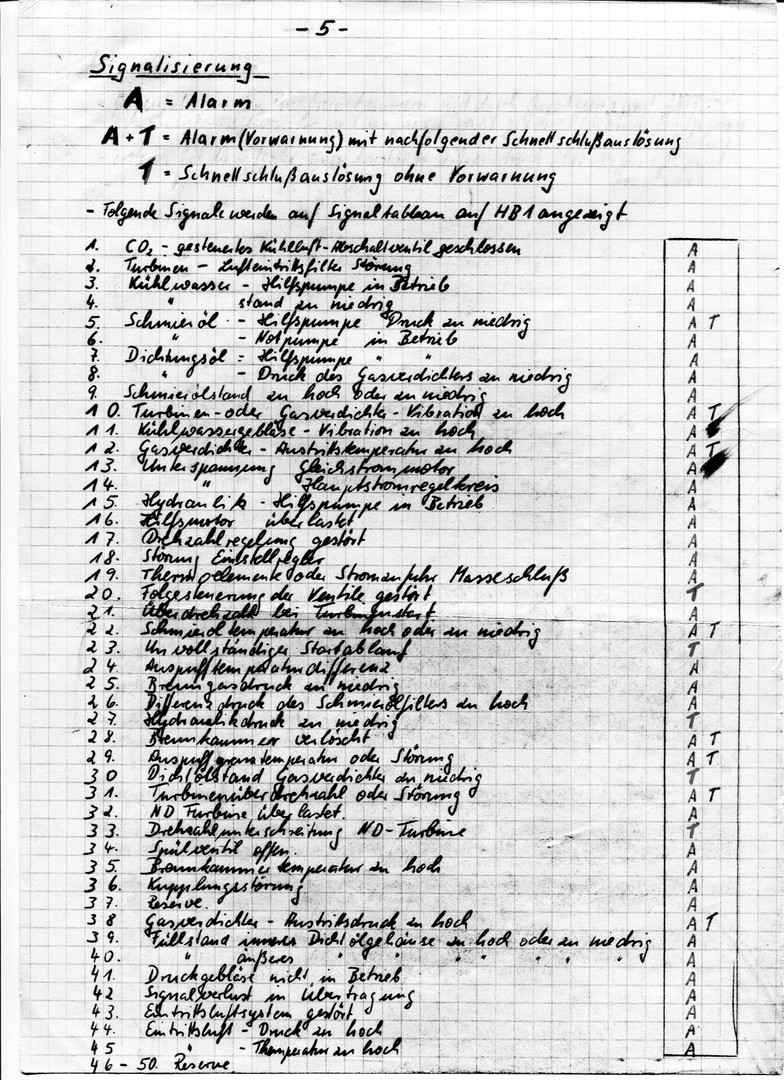 - 5 -
Signalisierung
A = Alarm
A + T = Alarm (Vorwarnung) mit nachfolgender Schnellschlußauslösung
T = Schnellschlußauslösung ohne Vorwarnung
- Folgende Signale werden auf Signaltableau auf HB1 angezeigt
1. CO₂ - gesteuertes Kühlluft-Abschaltventil geschlossen A
2. Turbinen - Lufteintrittsfilter Störung A
3. Kühlwasser - Hilfspumpe in Betrieb A
4. " stand zu niedrig A
5. Schmieröl - Hilfspumpe Druck zu niedrig A T
6. " - Notpumpe in Betrieb A
7. Dichtungsöl = Hilfspumpe " " A
8. " - Druck des Gasverdichters zu niedrig A
9. Schmierölstand zu hoch oder zu niedrig A
10. Turbinen- oder Gasverdichter - Vibration zu hoch A T
11. Kühlwassergebläse - Vibration zu hoch A
12. Gasverdichter - Austrittstemperatur zu hoch A T
13. Unterspannung Gleichstrommotor A
14. " Hauptstromregelkreis A
15. Hydraulik - Hilfspumpe in Betrieb A
16. Hilfsmotor überlastet A
17. Drehzahlregelung gestört A
18. Störung Einstellregler A
19. Thermoelemente oder Stromzufuhr Masseschluß A
20. Folgesteuerung der Ventile gestört T
21. Überdrehzahl bei Turbinenstart A
22. Schmieröltemperatur zu hoch oder zu niedrig A T
23. Unvollständiger Startablauf T
24. Auspufftemperaturdifferenz A
25. Brenngasdruck zu niedrig A
26. Differenzdruck des Schmierölfilters zu hoch A
27. Hydraulikdruck zu niedrig T
28. Brennkammer verlöscht A T
29. Auspuffgrenztemperatur oder Störung A T
30 Dichtölstand Gasverdichter zu niedrig T
31. Turbinenüberdrehzahl oder Störung A T
32. ND Turbine überlastet. A
33. Drehzahlunterschreitung ND-Turbine T
34. Spülventil offen. A
35. Brennkammertemperatur zu hoch A
36. Kupplungsstörung A
37. Reserve. A
38 Gasverdichter - Austrittsdruck zu hoch A T
39. Füllstand inneres Dichtölgehäuse zu hoch oder zu niedrig A
40. " äußeres " " " " " A
41. Druckgebläse nicht in Betrieb A
42 Signalverlust in Übertragung A
43. Eintrittsluftsystem gestört A
44. Eintrittsluft - Druck zu hoch A
45 " - Themperatur zu hoch A
46 - 50. Reserve